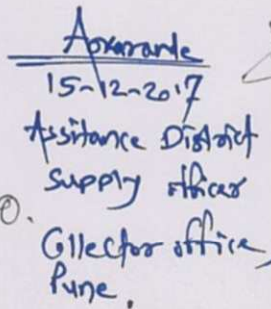 15-12-2017
Assitance District
supply officer
Collector office,
Pune.